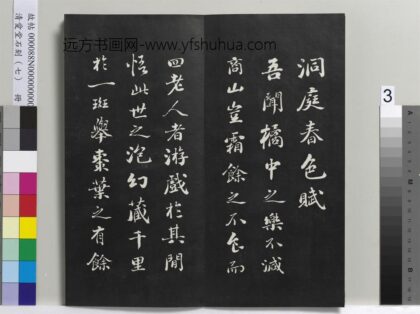 洞庭春色賦
吾聞橘中之樂不減
商山豈霜餘之不食而
四老人者游戲於其間
悟此世之泡幻藏千里
於一斑舉棗葉之有餘
远方书画网-www.yfshuhua.com
故帖 000088N00000000
清愛堂石刻（七） 冊
3